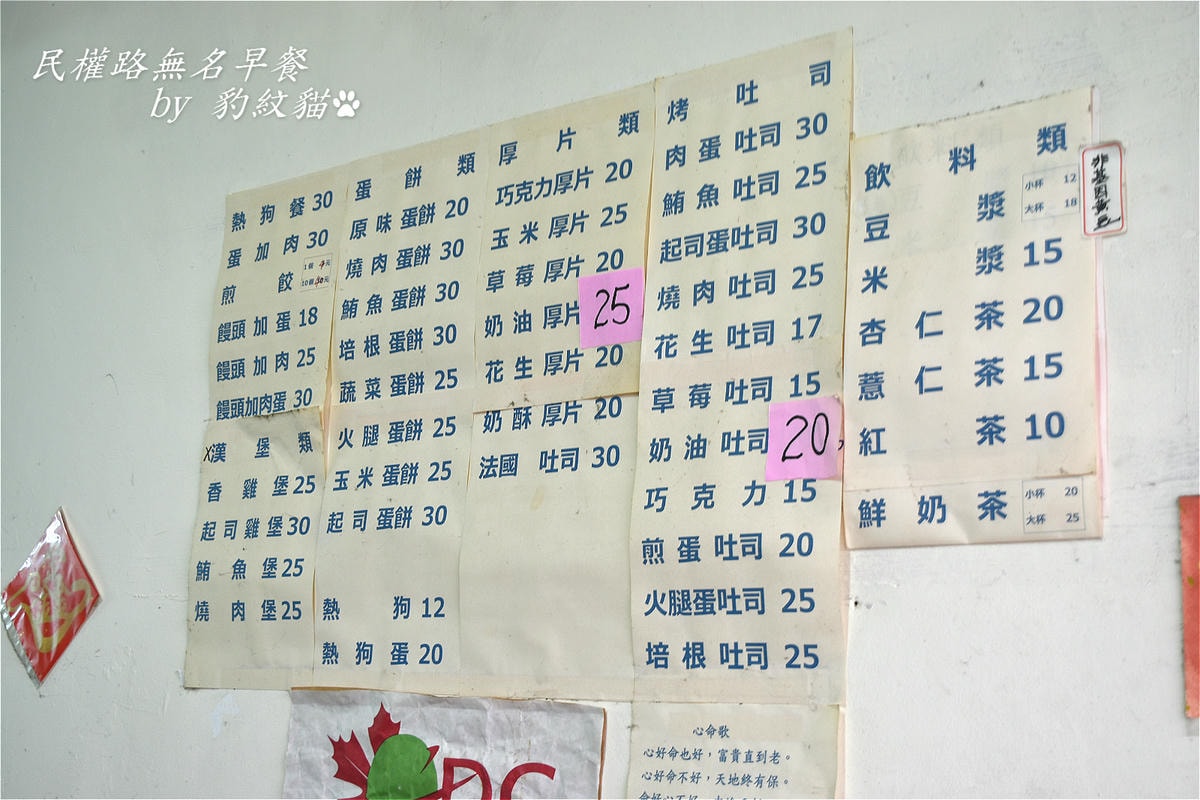 民權路無名早餐
by 豹紋貓
熱狗餐 30
蛋加肉 30
煎餃 1個 元
10個 元
饅頭加蛋 18
饅頭加肉 25
饅頭加肉蛋 30
X漢堡類
香雞堡 25
起司雞堡 30
鮪魚堡 25
燒肉堡 25
蛋餅類
原味蛋餅 20
燒肉蛋餅 30
鮪魚蛋餅 30
培根蛋餅 30
蔬菜蛋餅 25
火腿蛋餅 25
玉米蛋餅 25
起司蛋餅 30
熱狗 12
熱狗蛋 20
厚片類
巧克力厚片 20
玉米厚片 25
草莓厚片 20
奶油厚片 25
花生厚片 20
奶酥厚片 20
法國吐司 30
烤吐司
肉蛋吐司 30
鮪魚吐司 25
起司蛋吐司 30
燒肉吐司 25
花生吐司 17
草莓吐司 15
奶油吐司 20
巧克力 15
煎蛋吐司 20
火腿蛋吐司 25
培根吐司 25
飲料類
豆漿 小杯 12
大杯 18
米漿 15
杏仁茶 20
薏仁茶 15
紅茶 10
鮮奶茶 小杯 20
大杯 25
非基因黃豆
心命歌
心好命也好，富貴直到老。
心好命不好，天地終有保。